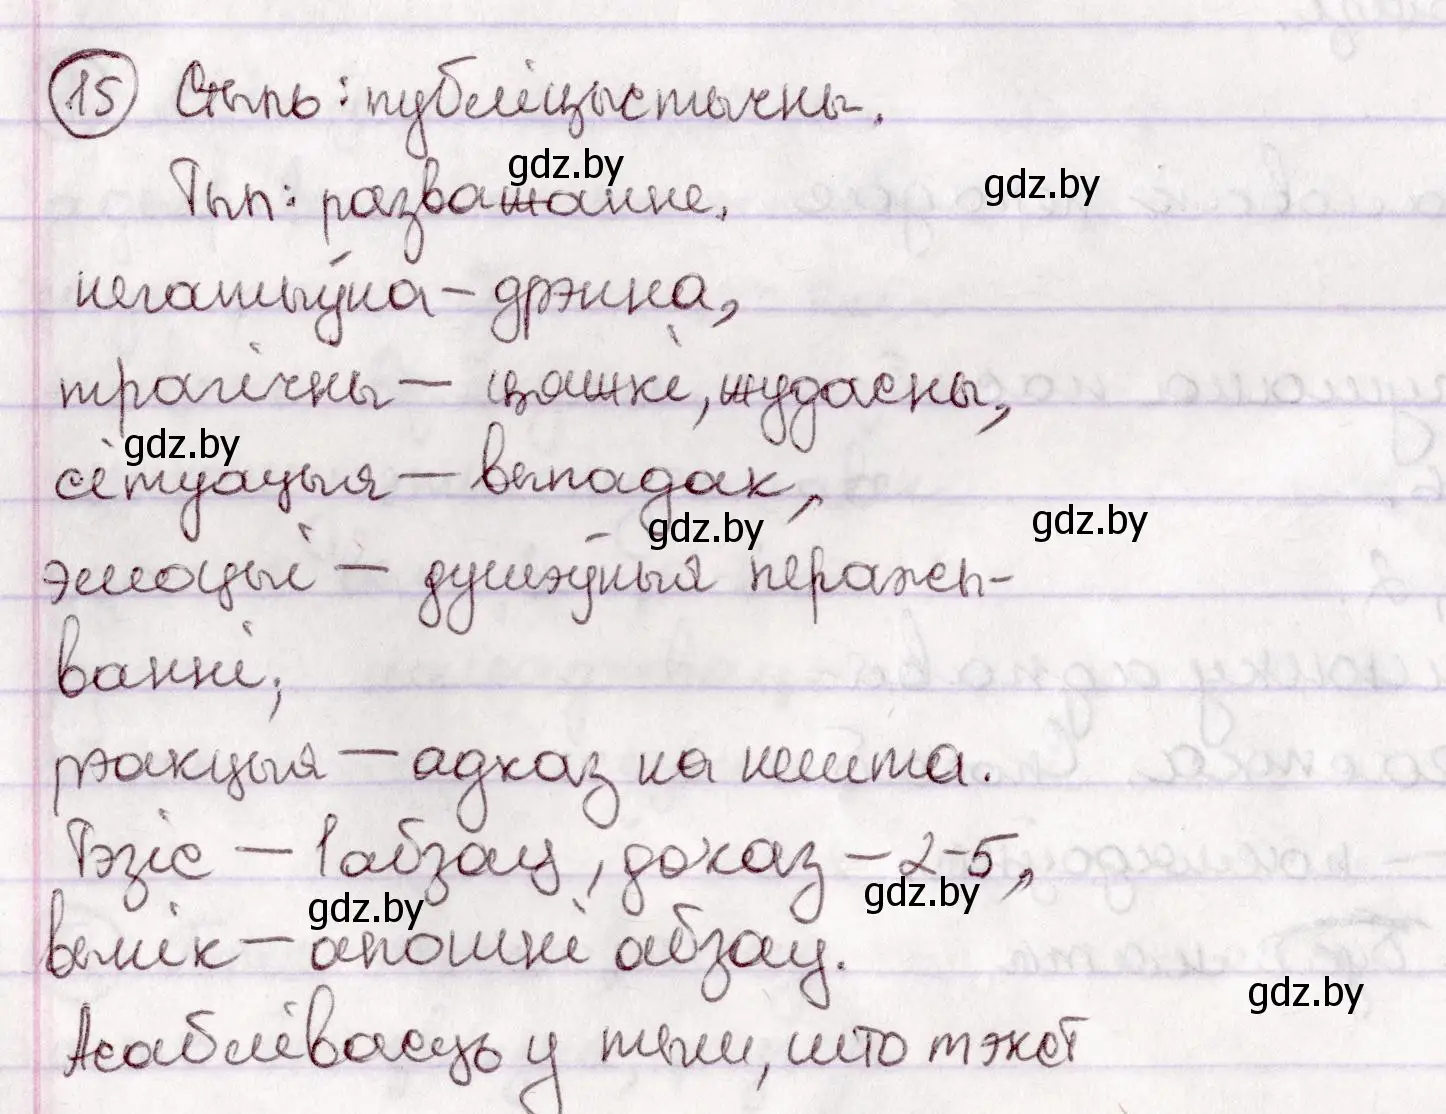 15 Стыль: публіцыстычны.
gdz.by
gdz.by
Тып: разважанне.
негатыўна – дрэнна,
трагічны – цяжкі, жудасны,
gdz.by
сітуацыя – выпадак,
gdz.by
gdz.by
эмоцыі – душэўныя перажы-
ванні;
рэакцыя – адказ на нешта.
Тэзіс – 1 абзац, доказ – 2-5,
gdz.by
gdz.by
вынік – апошні абзац.
gdz.by
Асаблівасць у тым, што тэкст